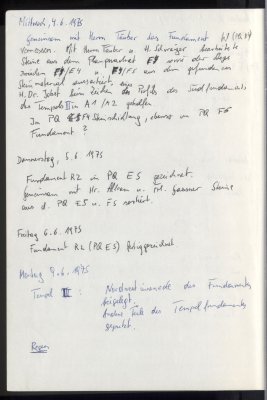 Mittwoch, 4.6.1975
Gemeinsam mit Herrn Täuber das Fundament
vermessen. Mit Herrn Täuber u. H. Schwaiger bearbeitete
Steine aus dem Planquadrat E4 sowie der Stege
zwischen E4 u. F5 aus dem gefundenen
Steinmaterial aussortiert,
H. Dr. Jobst beim Zeichnen des Profils des Südfundaments
des Tempels II in A1/A2 geholfen
In PQ F4 Steinschichtung, ebenso in PQ F6
Fundament?
Donnerstag, 5.6.1975
Fundament R2 in PQ E5 gezeichnet.
Gemeinsam mit Hr. u. Frl. Steine
aus d. PQ E5 u. F5 sortiert.
Freitag 6.6.1975
Fundament R2 (PQ E5) fertiggezeichnet
Montag 9.6.1975
Tempel III: Nordwestinnenecke des Fundaments
freigelegt.
Andere Teile des Tempelfundaments
geputzt.
Regen